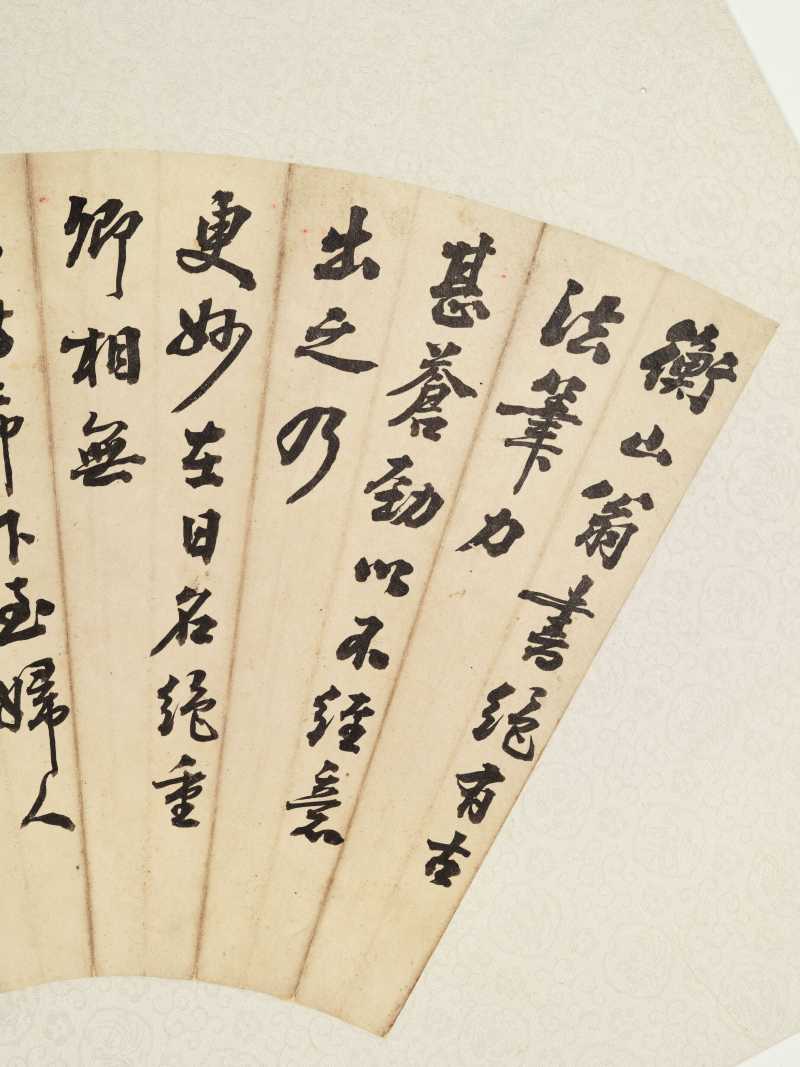 衡山翁書絕有古
法筆力
甚蒼勁以不經意
出之乃
更妙在日名絕重
卿相無
下至婦人